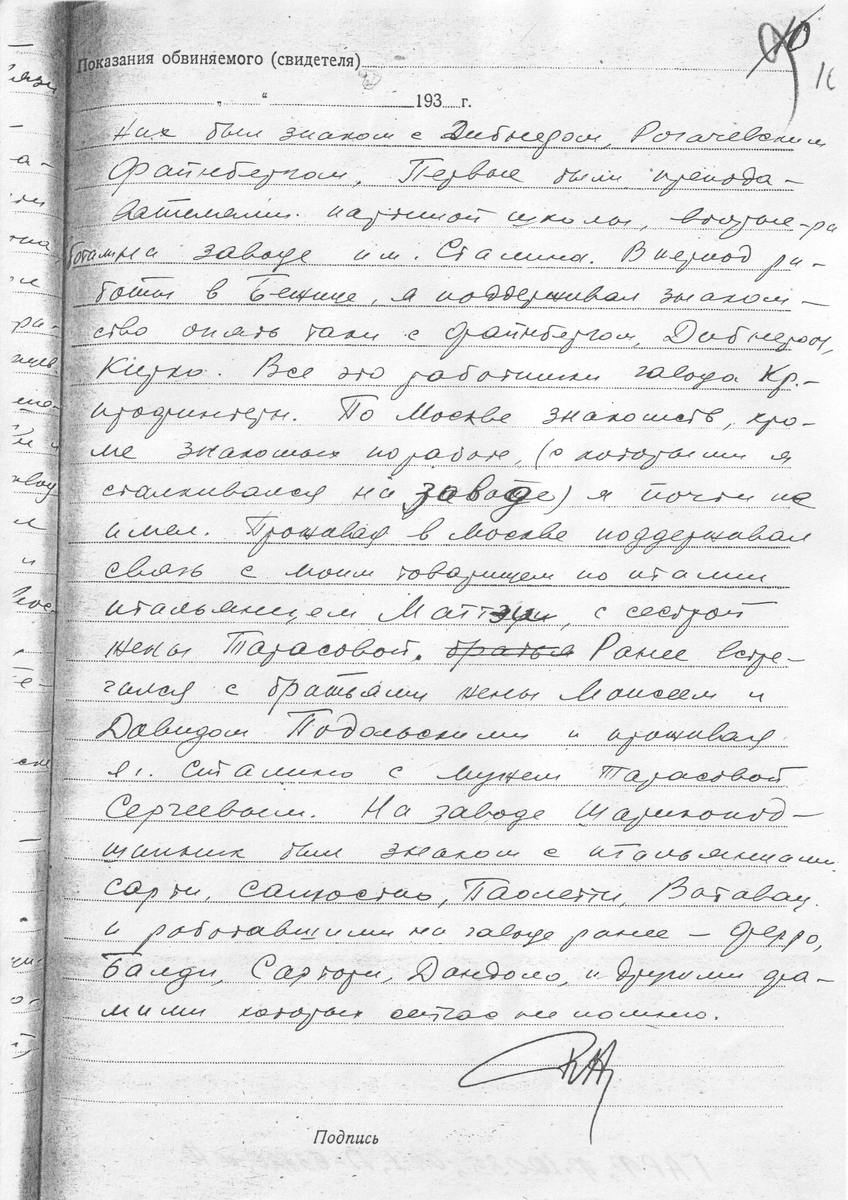 10
Показания обвиняемого (свидетеля)
„ “ 193 г.
них был знаком с Дибнером, Рогачевским
Файнбергом. Первые были препода-
вателями партийной школы, вторые-ра
ботали на заводе им. Сталина. В период ра-
боты в Бежице, я поддерживал знаком-
ство опять таки с Файнбергом, Дибнером,
Все это работники завода Кр.-
профинтерн. По Москве знакомств, кро-
ме знакомых по работе, (с которыми я
сталкивался на заводе) я почти не
имел. Проживая в Москве поддерживал
связь с моим товарищем по италии
итальянцем с сестрой
жены Тарасовой. братья Ранее встре-
чался с братьями жены Моисеем и
Давидом Подольскими и проживая
в г. Сталино с мужем Тарасовой
Сергеевым. На заводе Шарикопод-
шипник был знаком с итальянцами.
Сарти, Паолетти,
и работавшими на заводе ранее – Ферро,
Балди, Сартори, Дандоло, и другими фа-
милии которых сейчас не помню.
Подпись